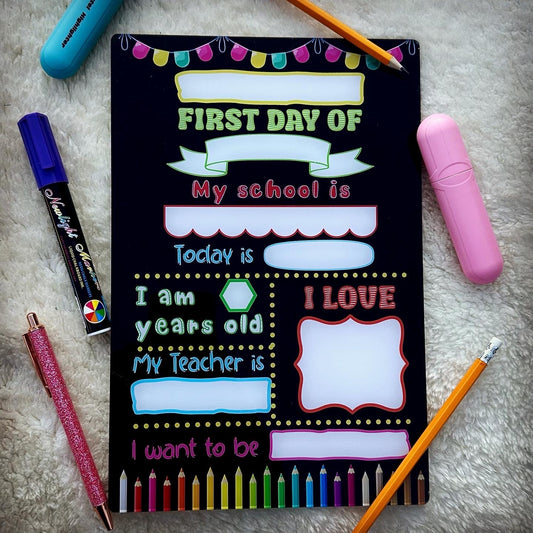 Highlighter
FIRST DAY OF
My school is
Today is
I am
years old
I LOVE
My Teacher is
I want to be